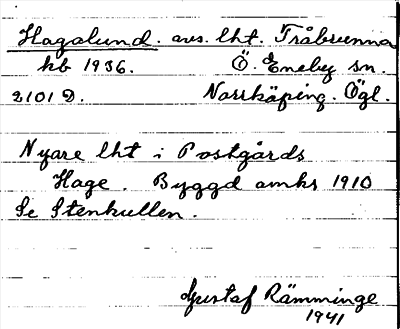 Hagalund. avs. lht. Träbrunna
kb 1936. Ö. Eneby sn.
2101 D. Norrköping. Ögl.
Nyare lht i Postgårds
Hage. Byggd omkr 1910
Se Stenkullen.
Gustaf Rämminge
1941